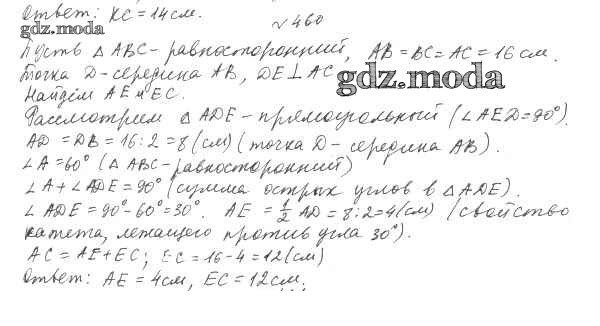 Ответ: KC = 14 см.
gdz.moda
№ 460
Пусть △ ABC - равносторонний, AB = BC = AC = 16 см.
Точка D - середина AB, DE ⊥ AC
gdz.moda
Найдём AE и EC.
Рассмотрим △ ADE - прямоугольный (∠AED = 90°).
AD = DB = 16 : 2 = 8 (см) (точка D - середина AB).
∠A = 60° (△ ABC - равносторонний)
∠A + ∠ADE = 90° (сумма острых углов в △ADE).
∠ADE = 90° - 60° = 30°. AE = 1/2 AD = 8 : 2 = 4 (см) (свойство
катета, лежащего против угла 30°).
AC = AE + EC; EC = 16 - 4 = 12 (см)
Ответ: AE = 4 см, EC = 12 см.